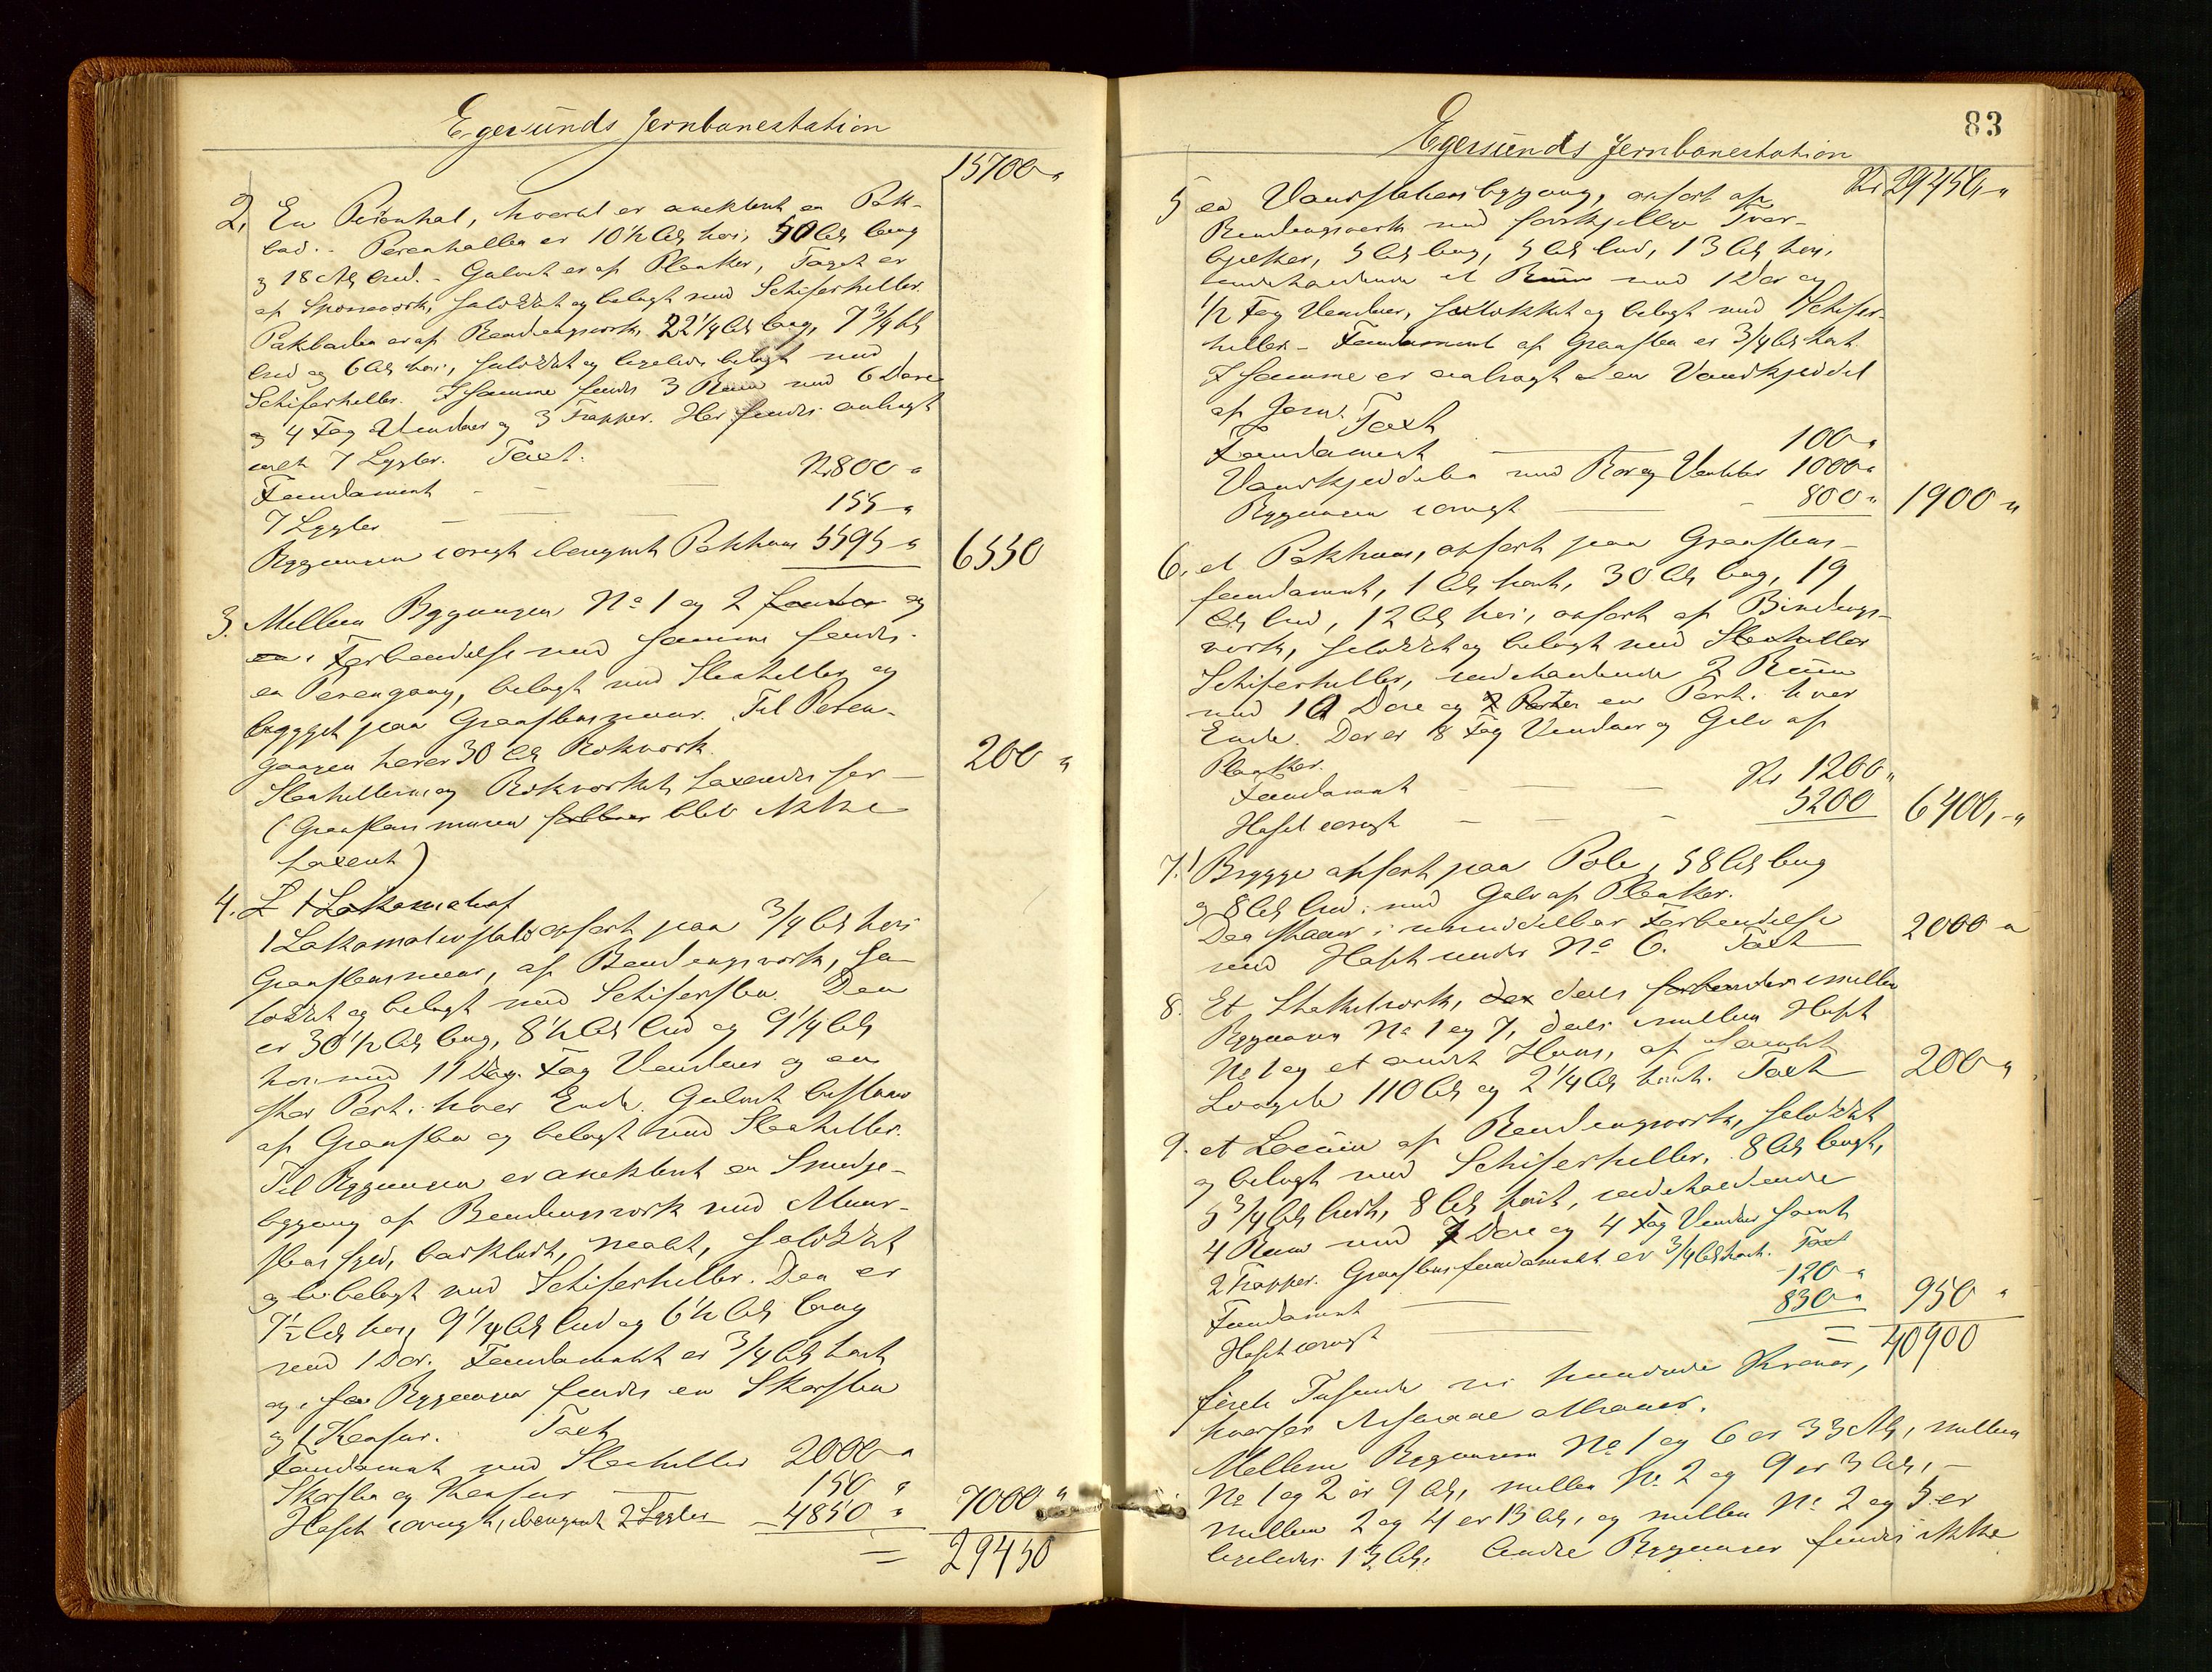 Egersunds Jernbanestation
15700 "
2, En Perronhal, hvortil er anekteret en Pak-
bod. - Peronhallen er 10 ½ Al. høi, 50 Al. lang
og 18 Al. bred. - Gulvet er af Planker, Taget er
af Sperreværk, selvtækket og belagt med Schiferheller.
Pakboden er af Bindingsværk, 22 ¼ Al. lang, 7 ¾ Al.
bred og 6 Al. høi, og ligeledes belagt med
Schiferheller. I samme findes 3 Rum med 6 Døre
og 4 Fag Vinduer og 3 Trapper. Her findes anbragt
7 Lygter. Taxt.
Fundament - - — 800 "
7 Lygter — — — 155 "
Bygningen iberegnet Pakhuus 5595 " 6550
3. Mellem Bygningen No 1 og 2 og
i Forbindelse med samme findes
en Perrongang, belagt med Stenheller og
bygget paa Graastensmuur. Til Perron-
gangen hører 30 Al. Rækværk.
Stenhellerne og Rækværket taxeredes for — 200 "
(Graastensmuren blev ikke
taxeret)
4. 1 Lokomotivs
1 Lokomotivstald opført paa ¾ Al. høi
Graastensmuur, af Bindingsværk,
og belagt med Schifersten. Den
er 30 ½ Al. lang, 8 ½ Al. bred og 9 ¼ Al.
høi med 11 Fag Vinduer og en
stor Port i hver Ende. Gulvet bestaar
af Graasten og belagt med Stenheller.
Til Bygningen er anekteret en Smedje-
bygning af Bindingsværk med Muur-
sten, malet,
og belagt med Schiferheller. Den er
7 ½ Al. høi, 9 ¼ Al. bred og 6 ½ Al. lang
med 1 Dør. Fundamentet er ¾ Al. høit
og i Bygningen findes en Skorsten
og 1 Taxt
Fundament med Stenheller 2000 "
Skorsten og — 150 "
Huset iberegnet 2 Lygter — 4850 " 7000 "
= 29450
83
Egersunds Jernbanestation
Kr 29450, "
5 en Vandstationsbygning, opført af
Bindingsværk med forskjellige Tver-
bjelker, 5 Al. lang, 5 Al. bred, 13 Al. høi,
indeholdende et Rum med 1 Dør og
1/2 Fag Vinduer, og belagt med Schifer-
heller - Fundament af Graasten er ¾ Al. høit
I samme er anbragt en Vandkjeddel
af Jern. Taxt
Fundament — — 100 "
Vandkjeddelen med Rør og Ventiler 1000 "
Bygningen — - 800 " 1900 "
6. et Pakhuus, opført paa Graastens-
fundament, 1 Al. høit, 30 Al. lang, 19
Al. bred, 12 Al. høi, opført af Bindings-
værk, og belagt med Stenheller
Schiferheller, indeholdende 2 Rum
med Døre og en Port i hver
Ende. Der er 8 Fag Vinduer og Gulv af
Planker.
Fundament — — Kr 1200 "
Huset — — - 5200 6400, - "
7. 1 Brygge opført paa Pæle, 58 Al. lang
og 8 Al. bred, med Gulv af Planker.
Den staaer i umiddelbar Forbindelse
med Huset under No 6. Taxt — 2000 "
8. Et Stakitværk, deels imellem
Bygning No 1 og 7, deels imellem Huset
No 1 og et andet Huus, af samlet
Længde 110 Al. og 2 ¼ Al. høit. Taxt — 200 "
9. et Locum af Bindingsværk,
og belagt med Schiferheller, 8 Al. langt,
5 ¾ Al. bredt, 8 Al. høit, indeholdende
4 Rum med 7 Døre og 4 Fag Vinduer samt
2 Trapper. Graastensfundamentet er ¾ Al. høit. Taxt
Fundament — 120 "
Huset — 830 " 950 "
= 40900
firti Tusinde ni hundrede Kroner,
hvorfor
Mellem Bygningen No 1 og 6 er 33 Al., mellem
No 1 og 2 er 9 Al., mellem No 2 og 9 er 3 Al., -
mellem 2 og 4 er 13 Al., og mellem No 2 og 5 er
ligeledes 13 Al. Andre Bygninger findes ikke